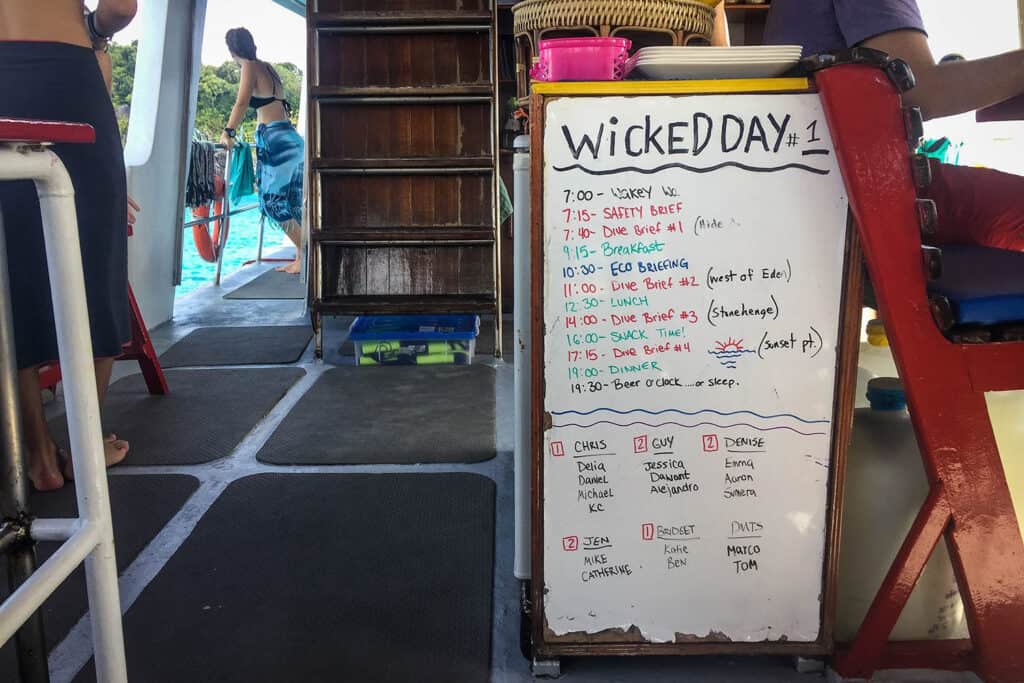 WickED DAY #1
7:00 - Wakey Wa.
7:15 - SAFETY BRIEF
7:40 - Dive Brief #1 (Hide
9:15 - Breakfast
10:30 - ECO BRIEFING
11:00 - Dive Brief #2 (west of Eden)
12:30 - LUNCH
14:00 - Dive Brief #3 (Stonehenge)
16:00 - SNACK TIME!
17:15 - Dive Brief #4 (sunset pt.)
19:00 - DINNER
19:30 - Beer o'clock ....or sleep.
1 CHRIS 2 GUY 2 DENISE
Delia Jessica Emma
Daniel Dawont Auron
Michael Alejandro Sumera
KC
2 JEN 1 BRIDGET DMTS
MIKE Katie MARCO
CATHERINE Ben TOM